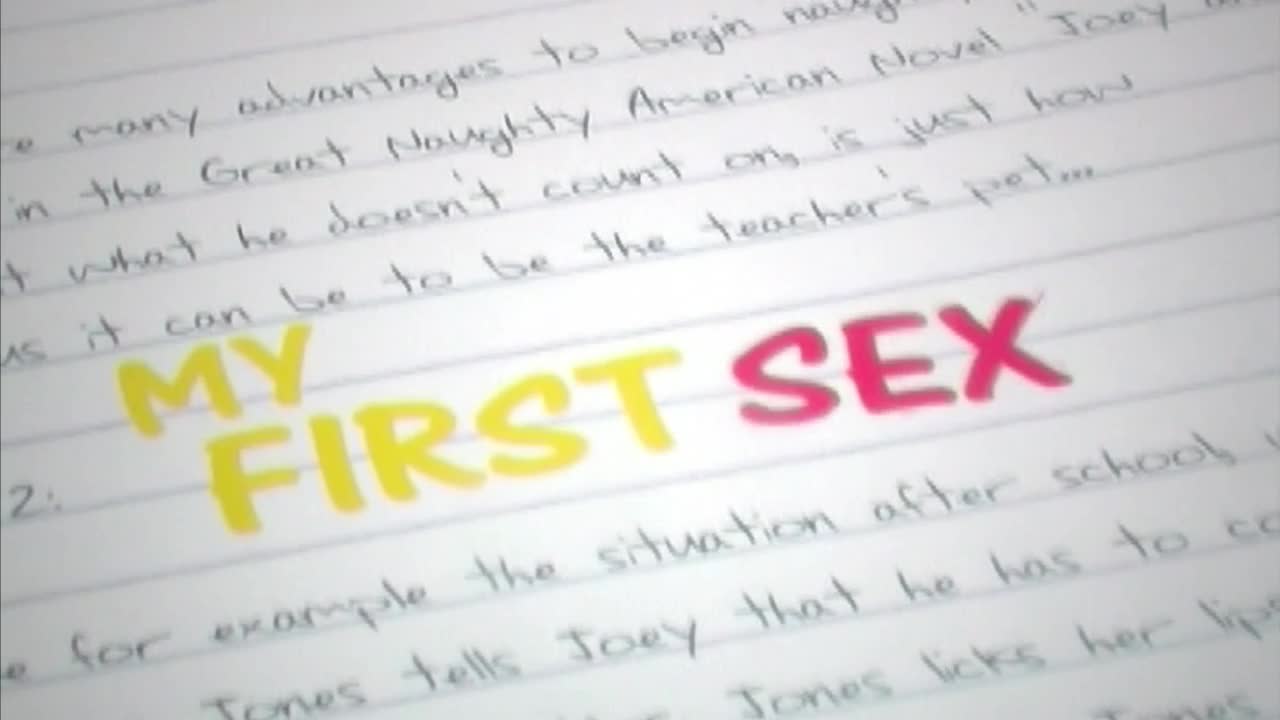 many advantages to begin
in the Great Naughty American Novel" Joey
what he doesn't count on, is just how
it can be to be the teacher's pet...
MY
FIRST SEX
2:
for example the situation after school,
Jones tells Joey that he has to
Jones licks her lips
Jones